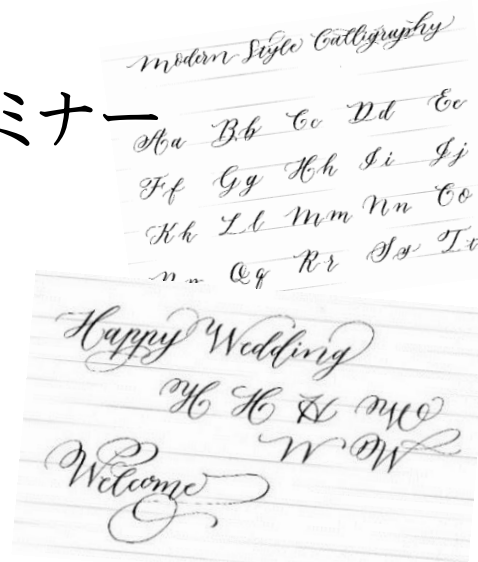 Modern Style Calligraphy
ミナー
Aa Bb Cc Dd Ee
Ff Gg Hh Ii Jj
Kk Ll Mm Nn Oo
Qq Rr Ss Tt
Happy Wedding
H H H W
W W
Welcome